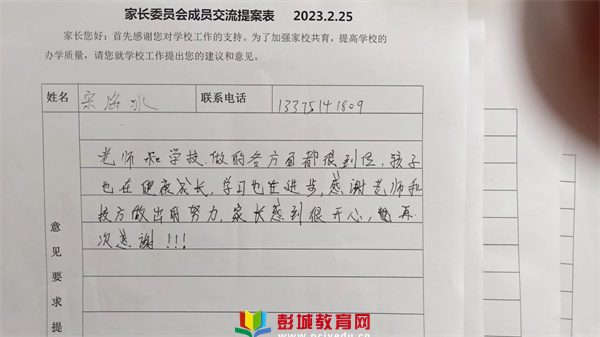 家长委员会成员交流提案表 2023.2.25
家长您好：首先感谢您对学校工作的支持。为了加强家校共育，提高学校的
办学质量，请您就学校工作提出您的建议和意见。
姓名 宗海水 联系电话 13375141809
老师和学校做的各方面都很到位，孩子
也在健康成长，学习也在进步，感谢老师和
校方做出的努力，家长感到很开心，再
次感谢！！！
意见要求提
彭城教育网